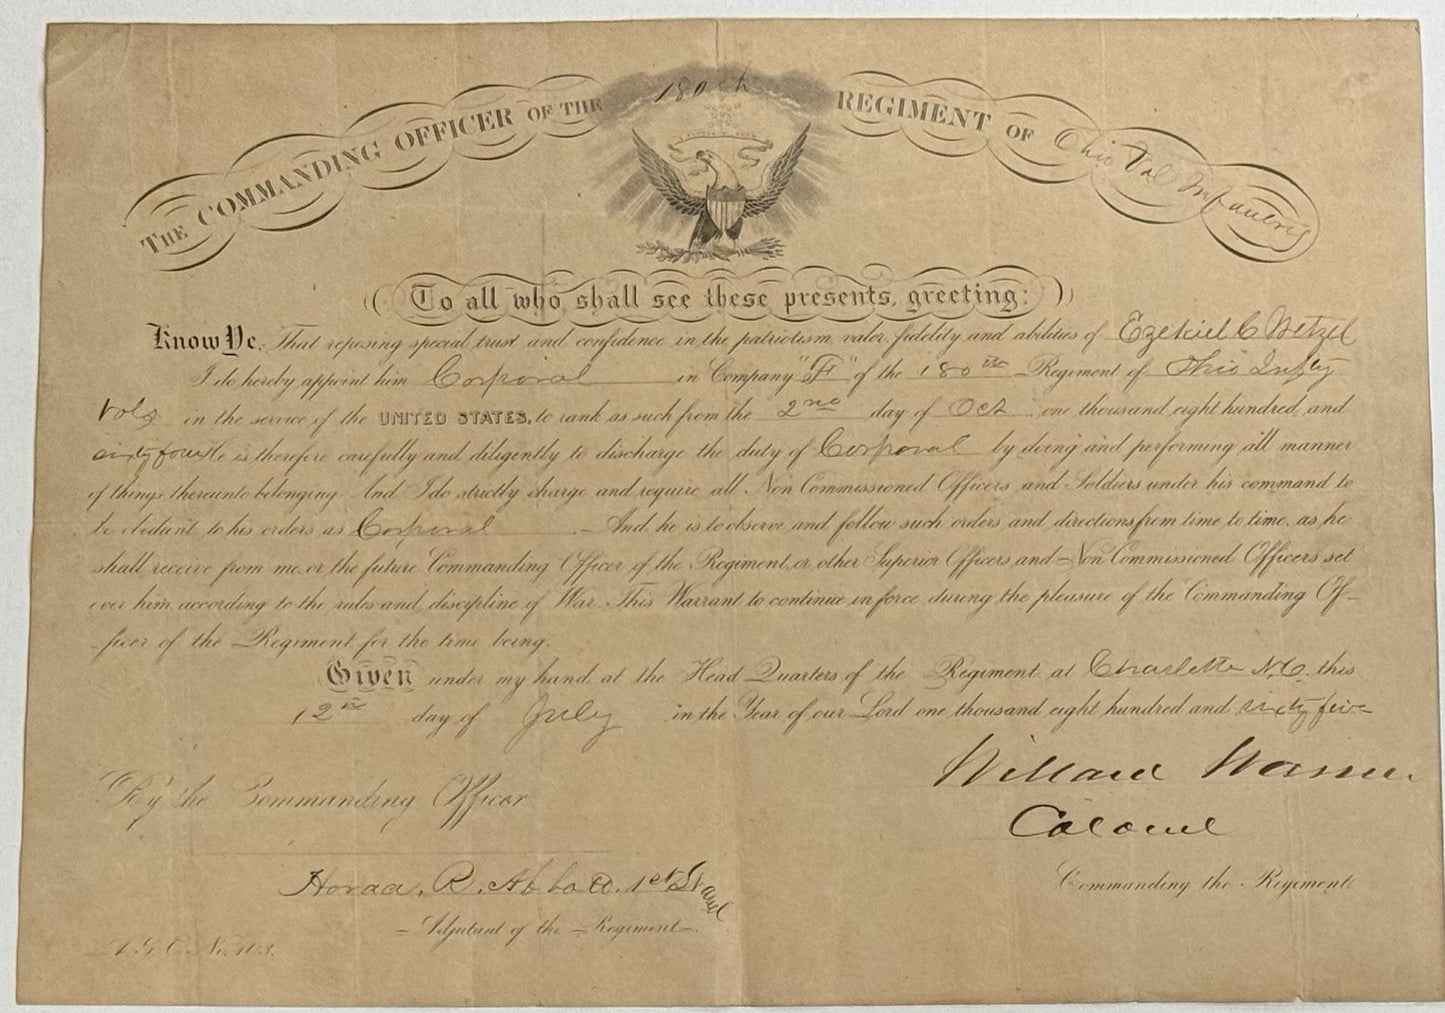 THE COMMANDING OFFICER OF THE 180th REGIMENT OF Ohio Vol Infantry
To all who shall see these presents, greeting:
Know Ye, That reposing special trust and confidence in the patriotism, valor, fidelity and abilities of Ezekiel C Wetzel
I do hereby appoint him Corporal in Company "F" of the 180th Regiment of Ohio Infty
Vols in the service of the UNITED STATES, to rank as such from the 2nd day of Oct one thousand eight hundred and
sixty four He is therefore carefully and diligently to discharge the duty of Corporal by doing and performing all manner
of things thereunto belonging. And I do strictly charge and require all Non Commissioned Officers and Soldiers under his command to
be obedient to his orders as Corporal And he is to observe and follow such orders and directions from time to time, as he
shall receive from me, or the future Commanding Officer of the Regiment, or other Superior Officers and Non Commissioned Officers set
over him, according to the rules and discipline of War. This Warrant to continue in force during the pleasure of the Commanding Of-
ficer of the Regiment for the time being.
Given under my hand at the Head Quarters of the Regiment at Charlotte N.C. this
12th day of July in the Year of our Lord one thousand eight hundred and sixty five
Willard Warner
Colonel
Commanding the Regiment.
By the Commanding Officer
Horace R. Abbott. 1st Lieut
Adjutant of the Regiment.
A.G.O. No. 103.